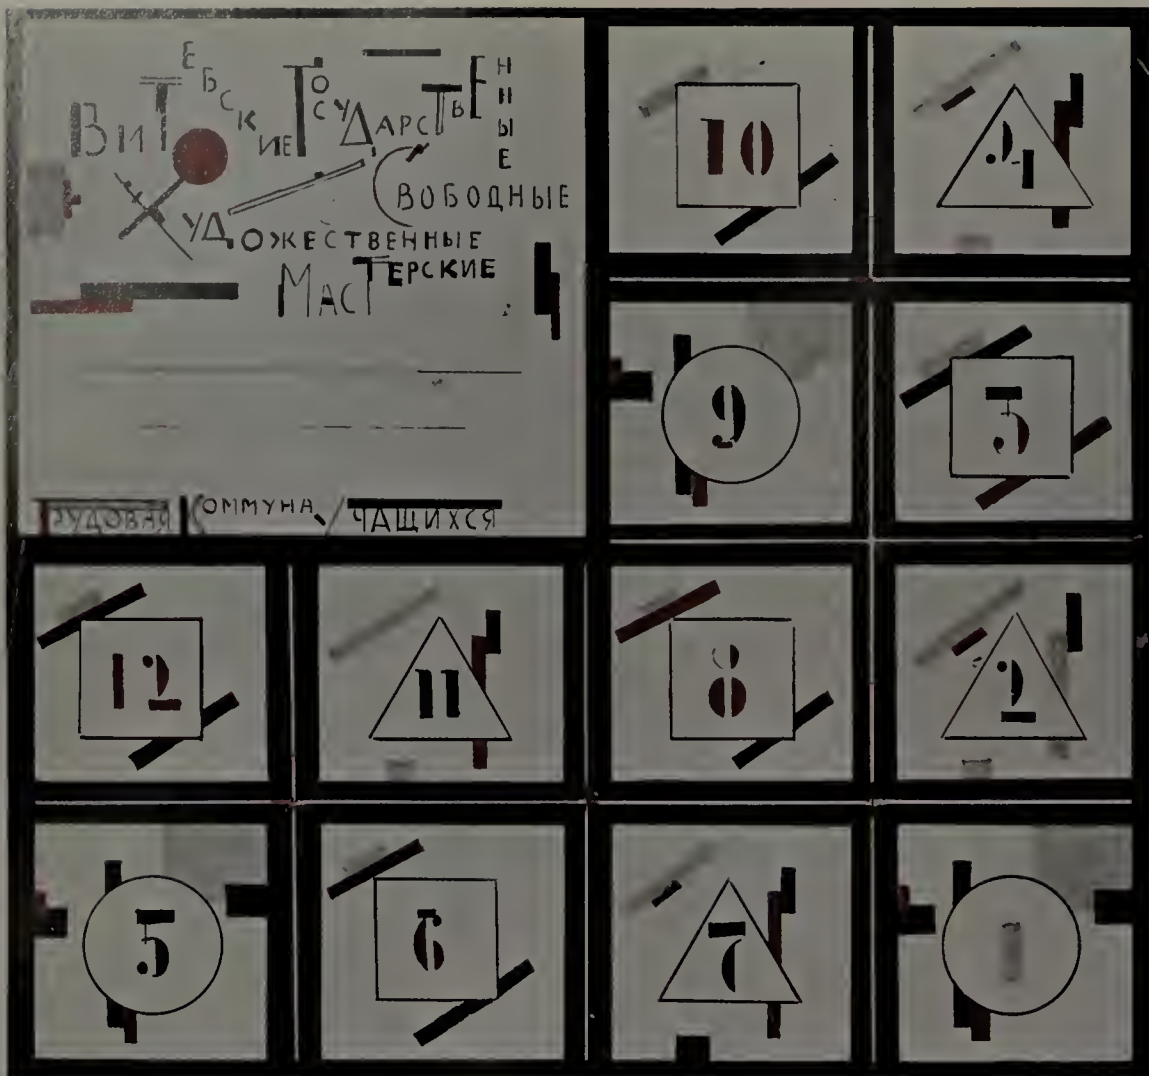 ВиТЕБСКИЕ ГОСУДАРСТВЕННЫЕ
СВОБОДНЫЕ
ХУДОЖЕСТВЕННЫЕ
МАСТЕРСКИЕ
ТРУДОВАЯ КОММУНА УЧАЩИХСЯ
10 4
9 3
12 11 8 2
5 6 7 1